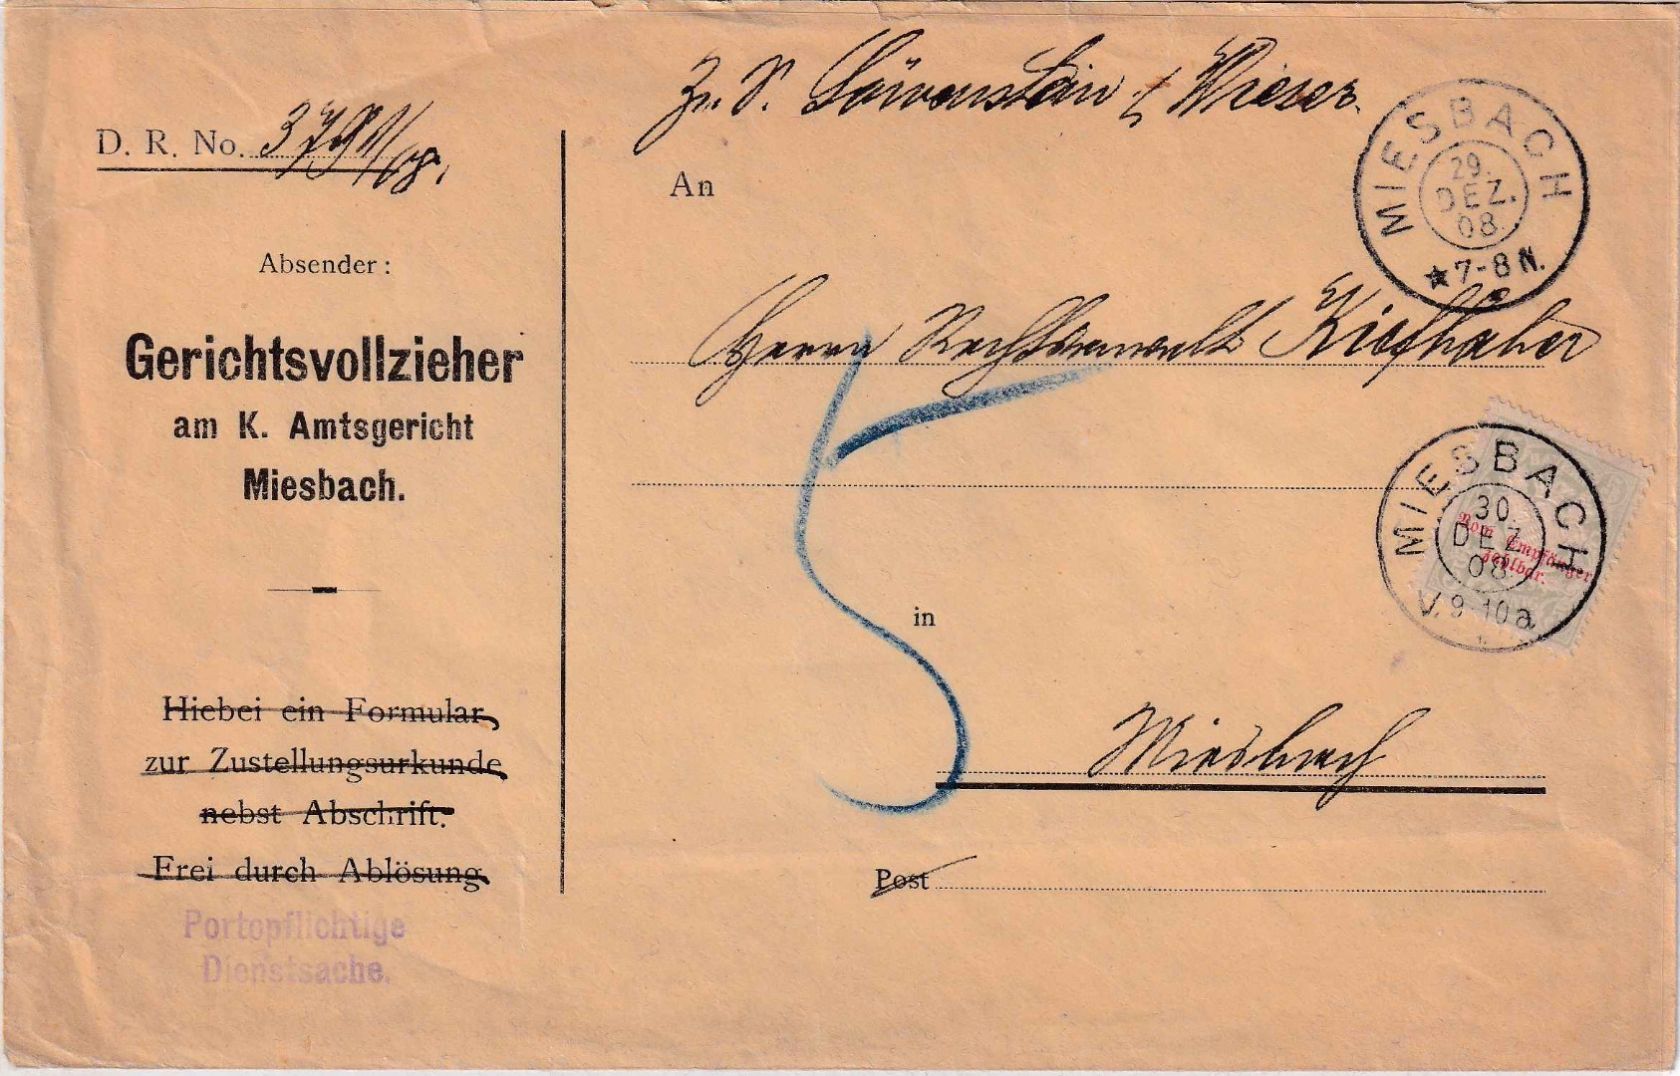 D. R. No. 3791/08.
Absender:
Gerichtsvollzieher
am K. Amtsgericht
Miesbach.
Hiebei ein Formular
zur Zustellungsurkunde
nebst Abschrift.
Frei durch Ablösung
Portopflichtige
Dienstsache.
Zu. S. Löwenstein % Wieser.
An
Herrn Rechtsanwalt Kiefhaber
5
in
Miesbach
Post
MIESBACH
29.
DEZ.
08.
7-8 N.
MIESBACH
30.
DEZ
08.
V. 9-10 a
Vom Empfänger
zahlbar.